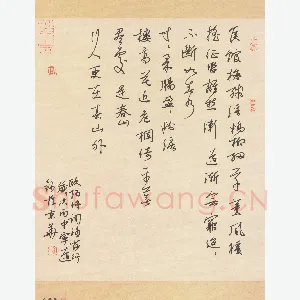 候館梅殘溪橋柳細草薰風暖
搖征轡離愁漸遠漸無窮迢々
不斷如春水
寸々柔腸盈々粉淚
樓高莫近危欄倚平蕪
盡處是春山
行人更在春山外
歐陽修詞踏莎行
京華
Shufawang.cn